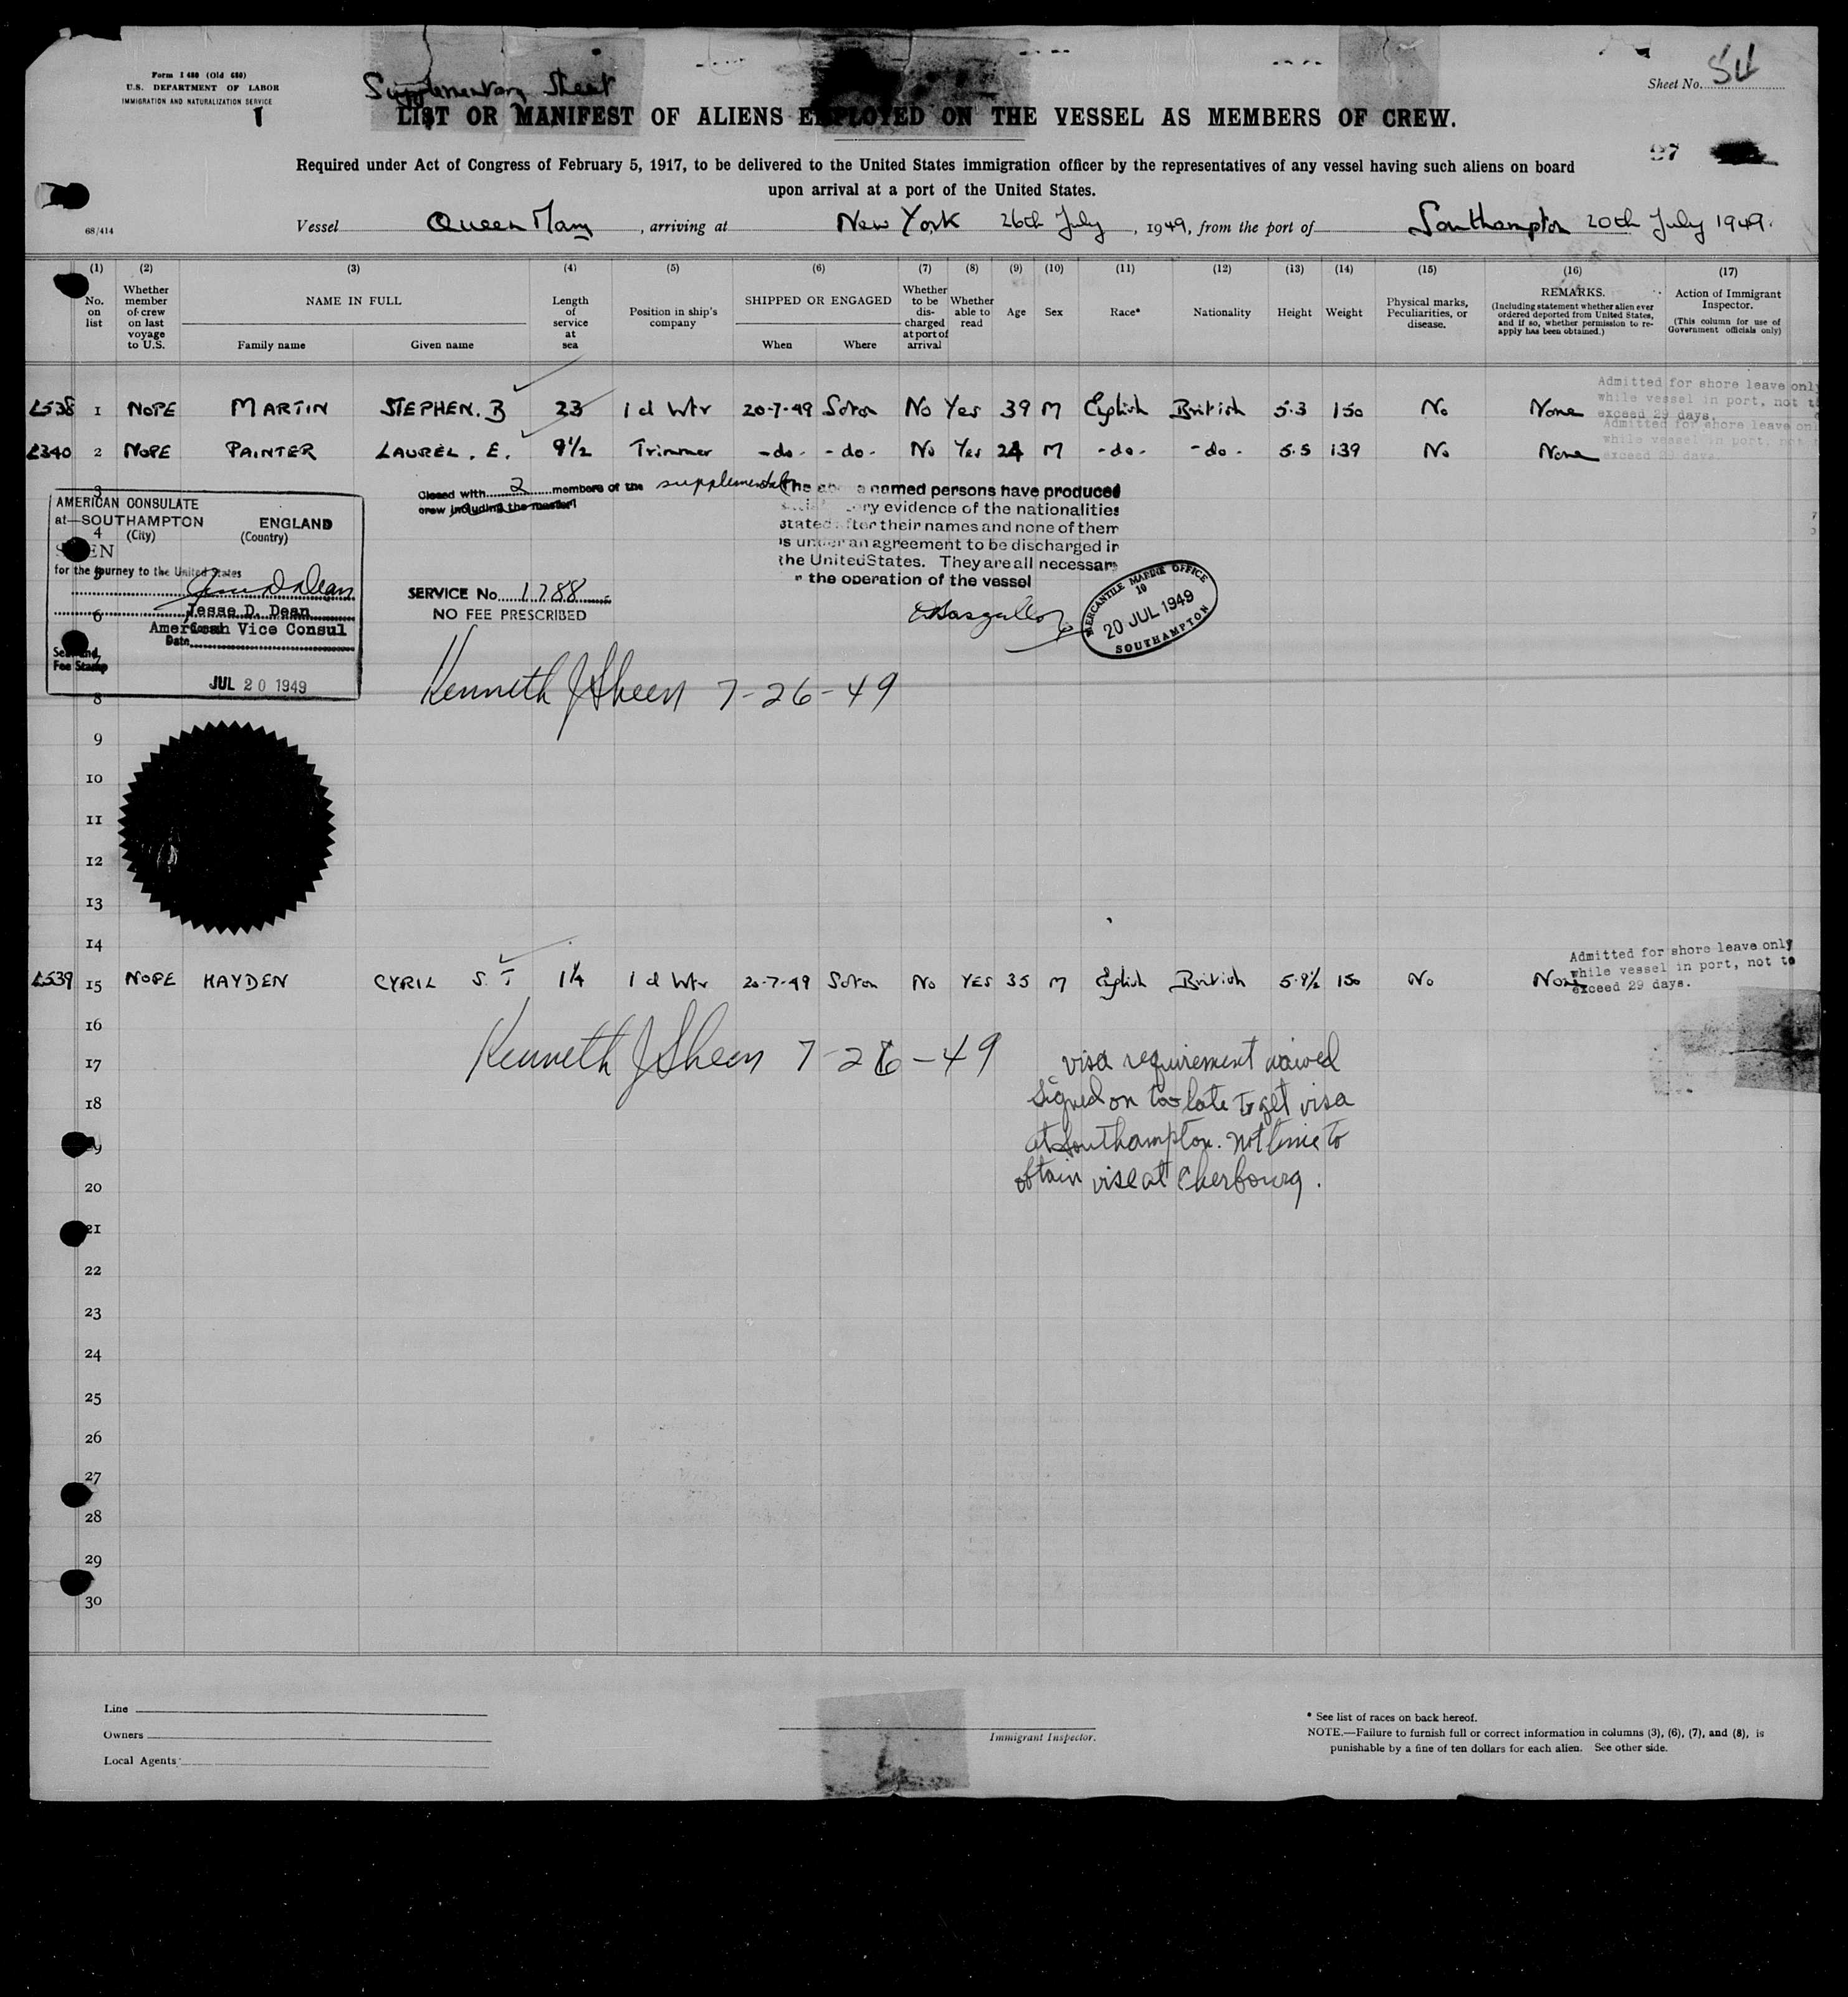 Form I 480 (Old 680)
U.S. DEPARTMENT OF LABOR
IMMIGRATION AND NATURALIZATION SERVICE
Supplementary Sheet
Sheet No.
LIST OR MANIFEST OF ALIENS EMPLOYED ON THE VESSEL AS MEMBERS OF CREW.
97
Required under Act of Congress of February 5, 1917, to be delivered to the United States immigration officer by the representatives of any vessel having such aliens on board
upon arrival at a port of the United States.
68/414
Vessel Queen Mary, arriving at New York 26th July, 1949, from the port of Southampton 20th July 1949.
(1) (2) (3) (4) (5) (6) (7) (8) (9) (10) (11) (12) (13) (14) (15) (16) (17)
No. on list
Whether member of crew on last voyage to U.S.
NAME IN FULL
Family name Given name
Length of service at sea
Position in ship's company
SHIPPED OR ENGAGED
When Where
Whether to be discharged at port of arrival
Whether able to read
Age
Sex
Race*
Nationality
Height
Weight
Physical marks, Peculiarities, or disease.
REMARKS.
(Including statement whether alien ever ordered deported from United States, and if so, whether permission to reapply has been obtained.)
Action of Immigrant Inspector.
(This column for use of Government officials only)
L538 1 NOPE MARTIN STEPHEN. B 23 1 cl Wtr 20-7-49 Soton No Yes 39 M English British 5.3 150 No None
Admitted for shore leave only
while vessel in port, not to
exceed 29 days.
L340 2 NOPE PAINTER LAUREL. E. 9½ Trimmer -do- -do- No Yes 24 M -do- -do- 5.5 139 No None
Admitted for shore leave only
while vessel in port, not
exceed 29 days.
3
AMERICAN CONSULATE
at—SOUTHAMPTON ENGLAND
4 (City) (Country)
SEEN
for the journey to the United States
5
Jesse D. Dean
6
American Vice Consul
Date
Seal and
Fee Stamp
7
JUL 20 1949
Closed with 2 members of the supplemental
crew including the master
SERVICE No. 1788
NO FEE PRESCRIBED
The above named persons have produced
ry evidence of the nationalities
stated after their names and none of them
is under an agreement to be discharged in
the United States. They are all necessary
the operation of the vessel
MERCANTILE MARINE OFFICE
10
20 JUL 1949
SOUTHAMPTON
Kenneth J Sheen 7-26-49
8
9
10
11
12
13
14
L539 15 NOPE HAYDEN CYRIL S. T 1¼ 1 cl Wtr 20-7-49 Soton No YES 35 M English British 5.9½ 150 No None
Admitted for shore leave only
while vessel in port, not to
exceed 29 days.
16
Kenneth J Sheen 7-26-49
17
visa requirement waived
signed on too late to get visa
at Southampton. Not time to
obtain vise at Cherbourg.
18
19
20
21
22
23
24
25
26
27
28
29
30
Line
Owners
Local Agents
Immigrant Inspector.
* See list of races on back hereof.
NOTE.—Failure to furnish full or correct information in columns (3), (6), (7), and (8), is
punishable by a fine of ten dollars for each alien. See other side.